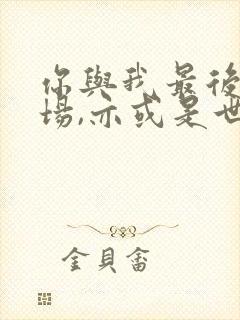 你與我最後
場,亦或是世
金貝畲